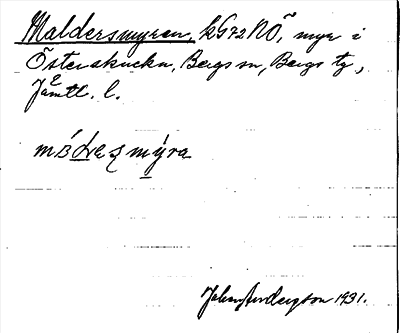 Maldersmyren, kG72NÖ, myr i
Österåkuckn, Bergs sn, Bergs tg,
Jämtl. l.
mályesmýra
Johan Anderzson 1931.